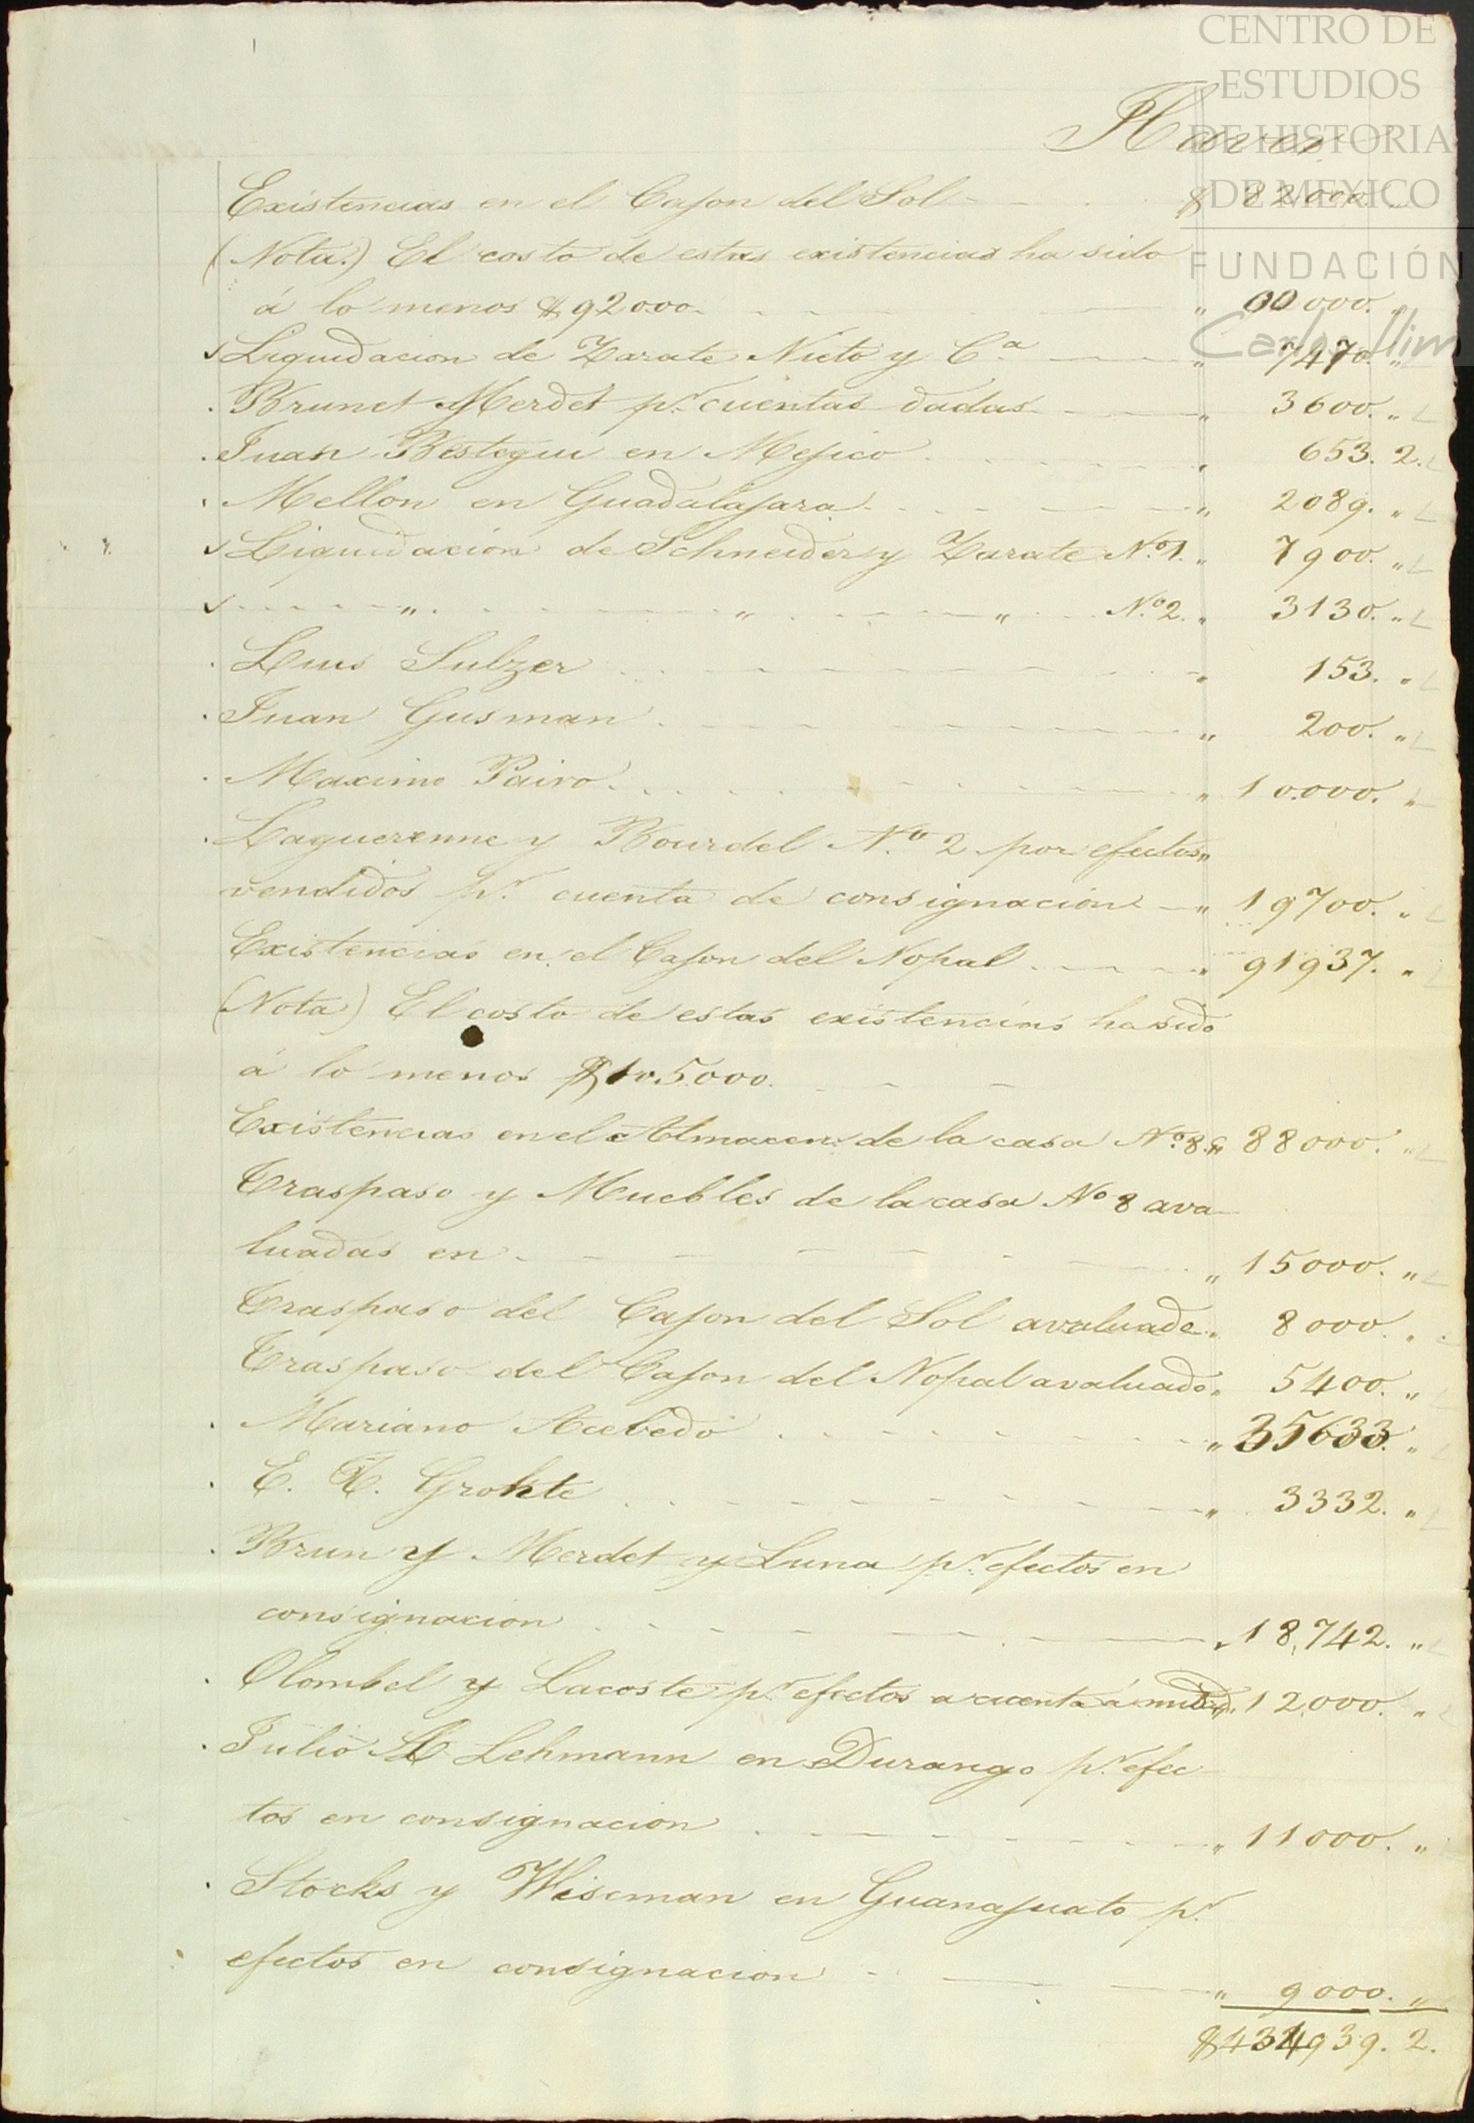 CENTRO DE
ESTUDIOS
DE HISTORIA
DE MEXICO
FUNDACIÓN
Haver
Existencias en el Cajon del Sol $ 82000
(Nota.) El costo de estas existencias ha sido
á lo menos $ 92000. " 00 000. "
Liquidacion de Zarate Nieto y Cª " 7470. "
Brunet y Merdet pr. cuentas dadas " 3600. "
Juan Bestegui en Mejico " 653. 2.
Mellon en Guadalajara " 2089. "
Liquidacion de Schneider y Zarate No. 1. " 7900. "
" " " No. 2. " 3130. "
Luis Sulzer " 153. "
Juan Gusman " 200. "
Maximo Pairo " 10.000. "
Laguerenne y Bourdel No. 2 por efectos "
vendidos pr. cuenta de consignacion " 19700. "
Existencias en el Cajon del Nopal " 91937. "
(Nota) El costo de estas existencias ha sido
á lo menos $ 105000.
Existencias en el Almacen de la casa No. 8. " 88000. "
Traspaso y Muebles de la casa No 8 ava-
luadas en " 15000. "
Traspaso del Cajon del Sol avaluado " 8000. "
Traspaso del Cajon del Nopal avaluado " 5400. "
Mariano Acebedo " 35633. "
E. Grohte " 3332. "
Brun y Merdet y Luna pr. efectos en
consignacion " 18,742. "
Olombel y Lacoste pr. efectos a cuenta á mitad " 12,000. "
Julio Lehmann en Durango pr. efec-
tos en consignacion " 11000. "
Stocks y Wiseman en Guanajuato pr.
efectos en consignacion " 9000. "
$ 434939. 2.